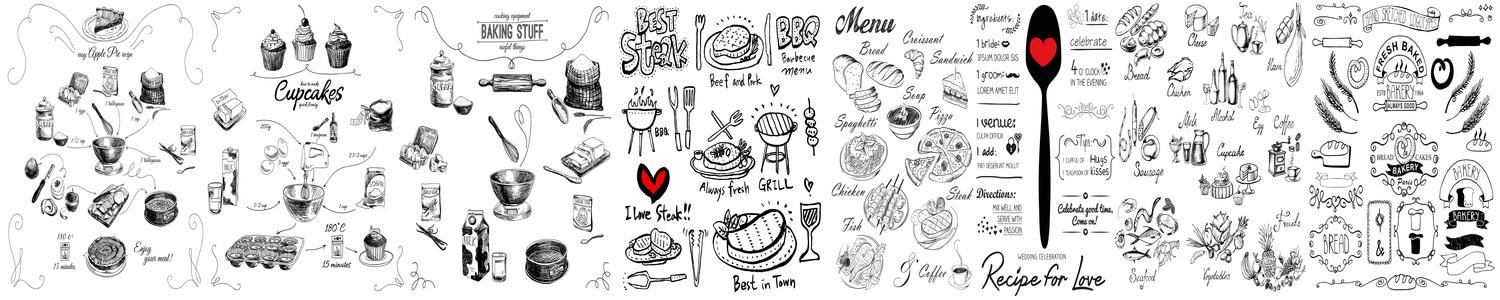 easy Apple Pie recipe
1 cup
1/2 cup
180°C
15 minutes
Enjoy
your meal!
how to make
Cupcakes
quick & easy
200g
2 1/2 cups
1/2 cup
1 cup
180°C
15 minutes
MILK
cooking equipment
BAKING STUFF
useful things
MILK
BEST
Steak
BBQ
Barbecue
menu
Beef and Pork
BBQ
Always fresh
GRILL
I Love Steak!!
Best in Town
Menu
Bread
Croissant
Sandwich
Soup
Spaghetti
Pizza
Chicken
Steak
Fish
& Coffee
Ingredients:
1 bride:
IPSUM DOLOR SIS
1 groom:
LOREM AMET ELIT
1 venue:
CULPA OFFICIA
1 add:
DESERUNT MOLLIT
Directions:
MIX WELL AND
SERVE WITH
PASSION
1 date:
celebrate
4 O'CLOCK
IN THE EVENING
Tips:
1 CUPFUL OF Hugs
1 TEASPOON OF kisses
Celebrate good time,
Come on!
WEDDING CELEBRATION
Recipe for Love
Bread
Cheese
Tea
Ham
Chicken
Alcohol
Milk
Egg
Coffee
Sausage
Cupcake
Fruits
Seafood
Vegetables
HAND SKETCHED LOGOTYPES
FRESH BAKED
BAKERY
ESTD 1964
ALWAYS GOOD
BREAD CAKES
BAKERY
Paris
BAKERY
BAKERY
BREAD
&